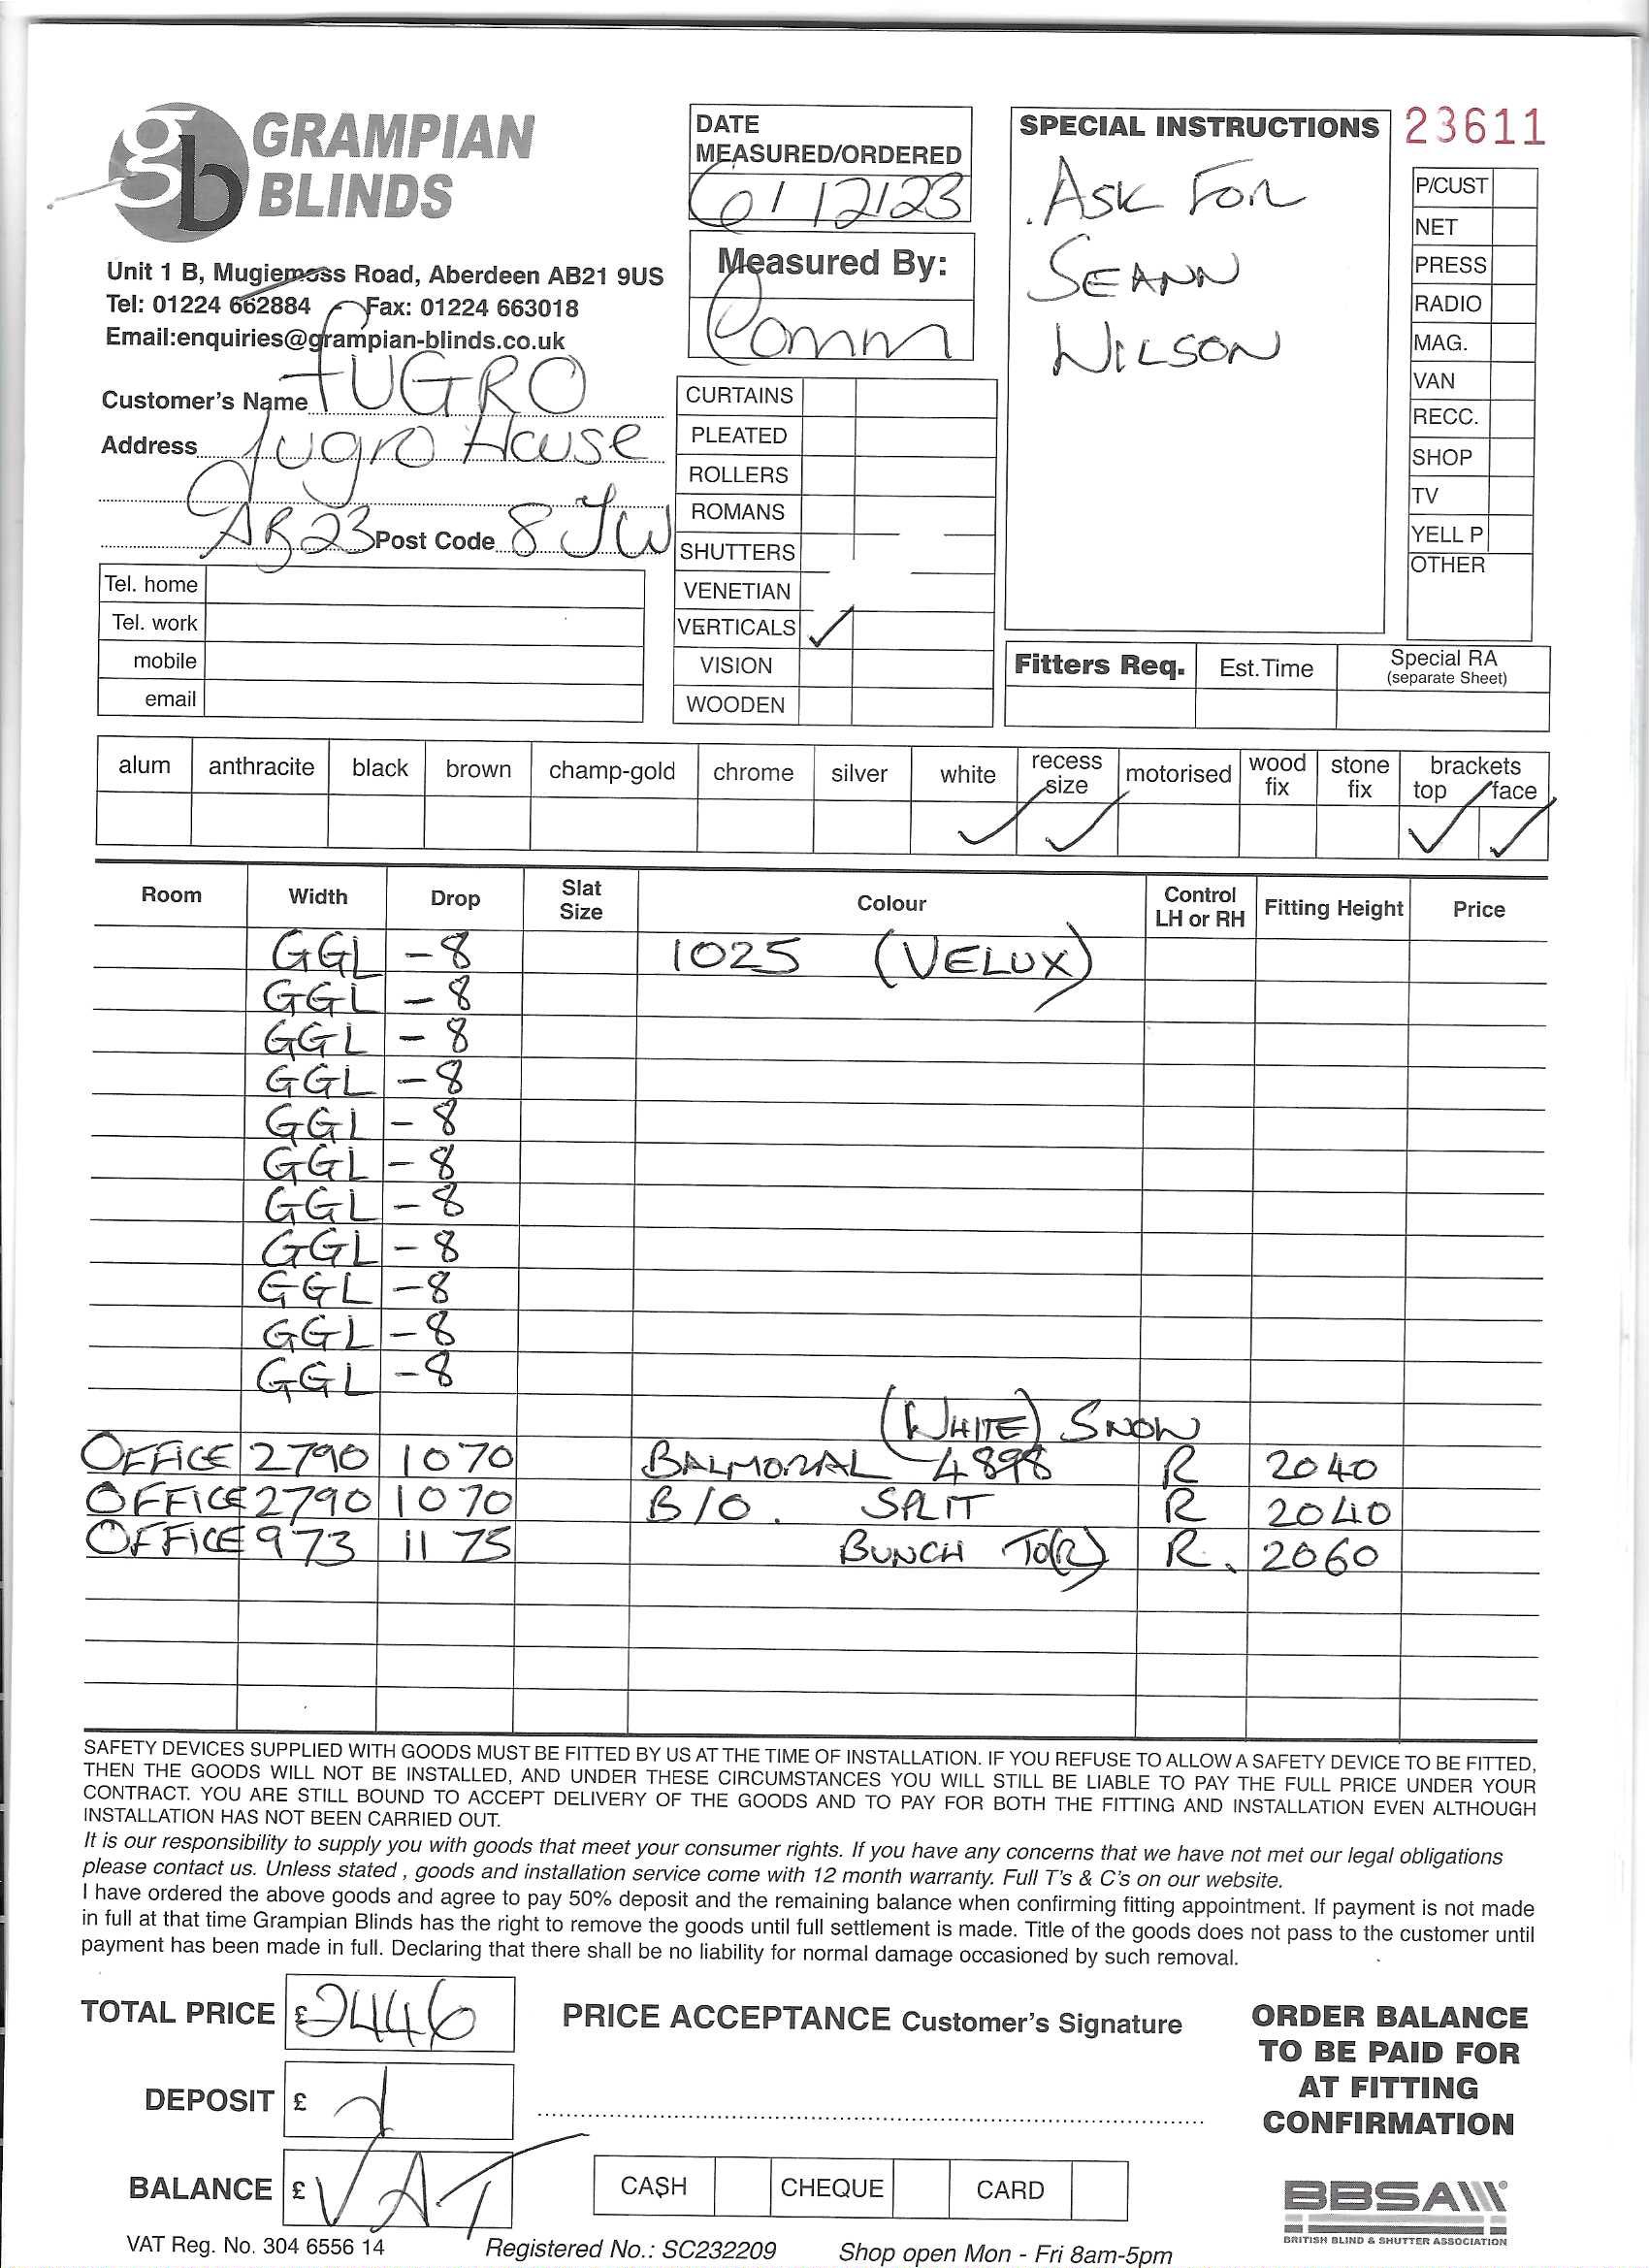 gb GRAMPIAN
BLINDS
Unit 1 B, Mugiemoss Road, Aberdeen AB21 9US
Tel: 01224 662884 Fax: 01224 663018
Email:enquiries@grampian-blinds.co.uk
Customer's Name FUGRO
Address Fugro House
AB23 Post Code 8JW
Tel. home
Tel. work
mobile
email
DATE
MEASURED/ORDERED
6/12/23
Measured By:
Comm
CURTAINS
PLEATED
ROLLERS
ROMANS
SHUTTERS
VENETIAN
VERTICALS ✓
VISION
WOODEN
SPECIAL INSTRUCTIONS
ASK FOR
SEANN
WILSON
23611
P/CUST
NET
PRESS
RADIO
MAG.
VAN
RECC.
SHOP
TV
YELL P
OTHER
Fitters Req. Est.Time Special RA
(separate Sheet)
alum anthracite black brown champ-gold chrome silver white recess size motorised wood fix stone fix brackets top face
✓ ✓ ✓ ✓
Room Width Drop Slat Size Colour Control LH or RH Fitting Height Price
GGL -8 1025 (VELUX)
GGL -8
GGL -8
GGL -8
GGL -8
GGL -8
GGL -8
GGL -8
GGL -8
GGL -8
GGL -8
(WHITE) SNOW
OFFICE 2790 1070 BALMORAL 4898 R 2040
OFFICE 2790 1070 B/O. SPLIT R 2040
OFFICE 973 1175 BUNCH TO(R) R. 2060
SAFETY DEVICES SUPPLIED WITH GOODS MUST BE FITTED BY US AT THE TIME OF INSTALLATION. IF YOU REFUSE TO ALLOW A SAFETY DEVICE TO BE FITTED,
THEN THE GOODS WILL NOT BE INSTALLED, AND UNDER THESE CIRCUMSTANCES YOU WILL STILL BE LIABLE TO PAY THE FULL PRICE UNDER YOUR
CONTRACT. YOU ARE STILL BOUND TO ACCEPT DELIVERY OF THE GOODS AND TO PAY FOR BOTH THE FITTING AND INSTALLATION EVEN ALTHOUGH
INSTALLATION HAS NOT BEEN CARRIED OUT.
It is our responsibility to supply you with goods that meet your consumer rights. If you have any concerns that we have not met our legal obligations
please contact us. Unless stated , goods and installation service come with 12 month warranty. Full T's & C's on our website.
I have ordered the above goods and agree to pay 50% deposit and the remaining balance when confirming fitting appointment. If payment is not made
in full at that time Grampian Blinds has the right to remove the goods until full settlement is made. Title of the goods does not pass to the customer until
payment has been made in full. Declaring that there shall be no liability for normal damage occasioned by such removal.
TOTAL PRICE £2446
DEPOSIT £ +
BALANCE £ VAT
PRICE ACCEPTANCE Customer's Signature
CASH CHEQUE CARD
ORDER BALANCE
TO BE PAID FOR
AT FITTING
CONFIRMATION
BBSA
BRITISH BLIND & SHUTTER ASSOCIATION
VAT Reg. No. 304 6556 14 Registered No.: SC232209 Shop open Mon - Fri 8am-5pm